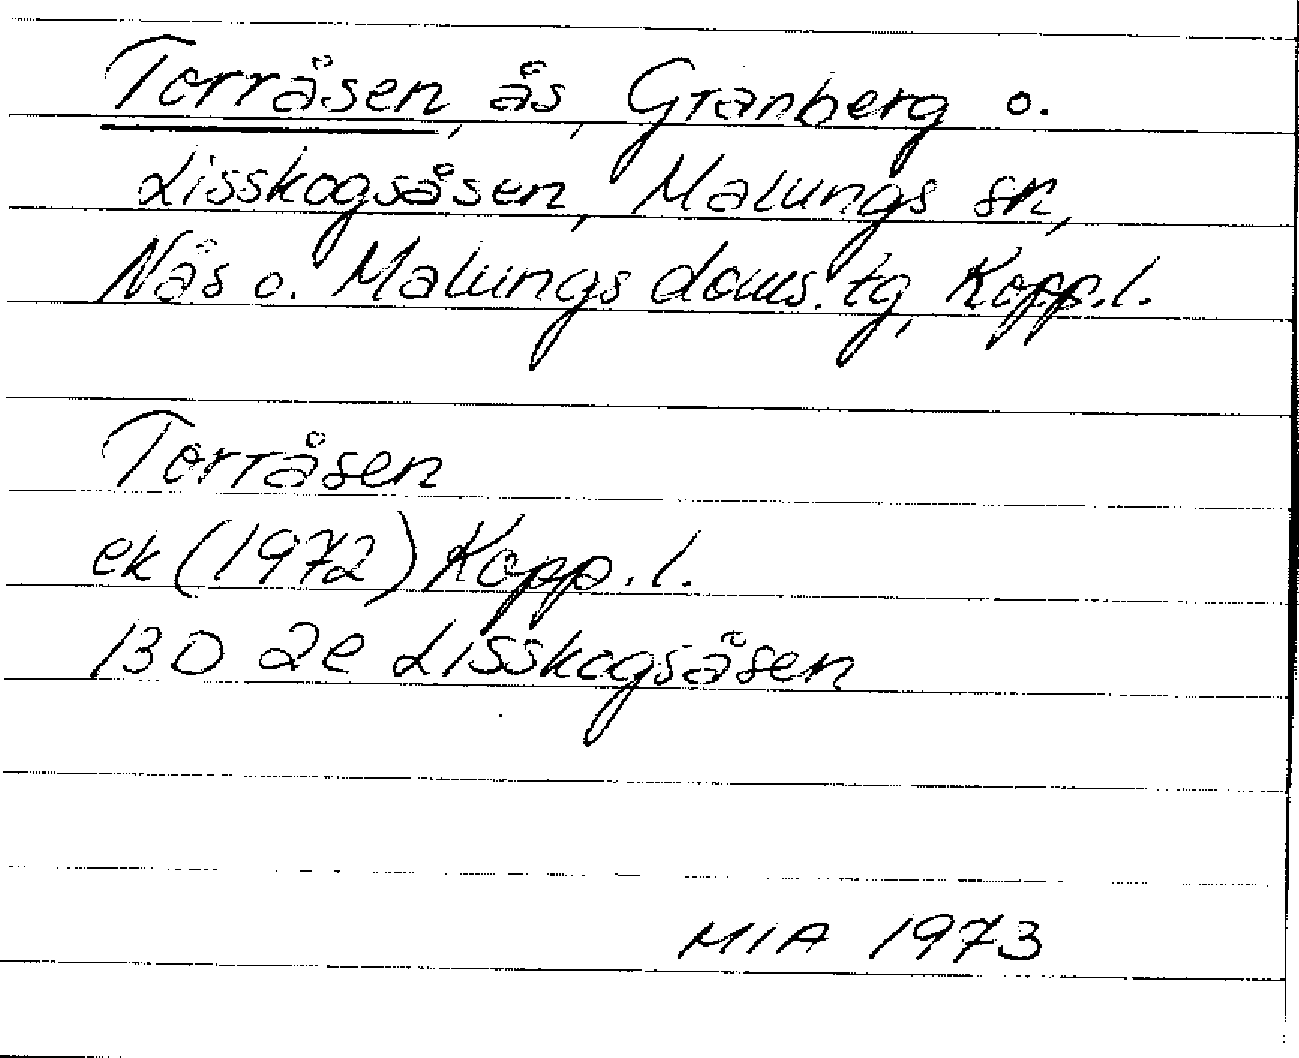 Torråsen, ås, Granberg o.
Lisskogsåsen, Malungs sn,
Nås o. Malungs doms. tg, Kopp. l.
Torråsen
ek (1972) Kopp. l.
13D 2e Lisskogsåsen
MIA 1973